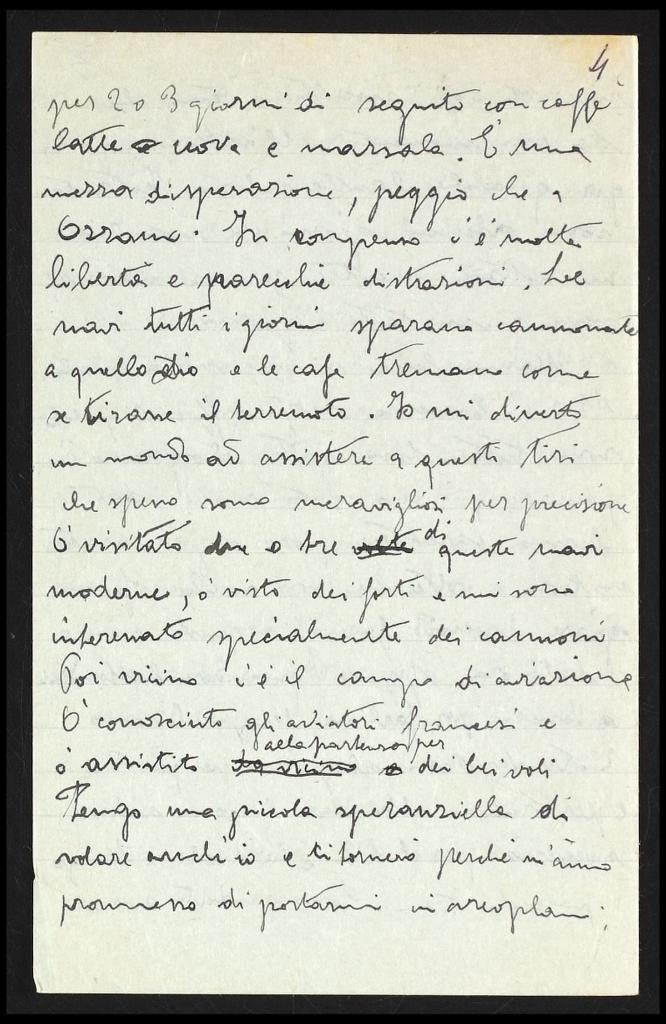 4
per 2 o 3 giorni di seguito con caffè
latte o uova e marsala. È una
mezza disperazione, peggio che a
Ozzano. In compenso c'è molta
libertà e parecchie distrazioni. Le
navi tutti i giorni sparano cannonate
a quello dio e le case tremano come
se tirasse il terremoto. Io mi diverto
un mondo ad assistere a questi tiri
che spesso sono meravigliosi per precisione
Ò visitato due o tre volte di queste navi
moderne, ò visto dei forti e mi sono
interessato specialmente dei cannoni
Poi vicino c'è il campo di aviazione
Ò conosciuto gli aviatori francesi e
ò assistito da vicino a alla partenza per dei bei voli
Tengo una piccola speranziella di
volare anch'io e ci tornerò perchè m'ànno
promesso di portarmi in areoplani;